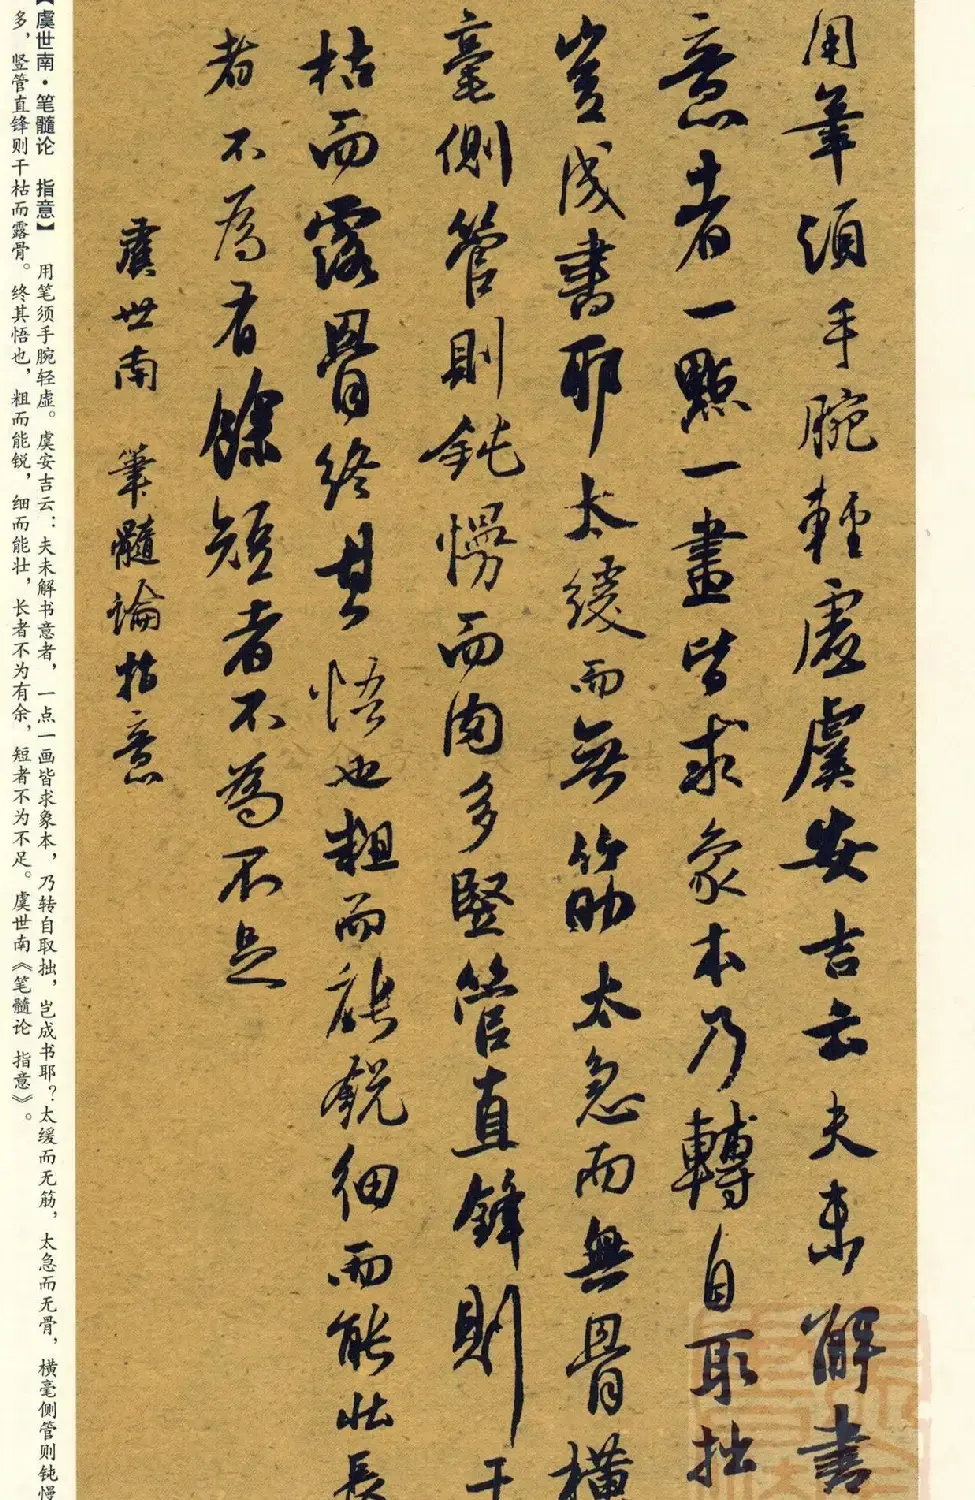 用筆須手腕輕虛虞安吉云夫未解書
意者一點一畫皆求象本乃轉自取拙
豈成書耶太緩而無筋太急而無骨橫
毫側管則鈍慢而肉多竪管直鋒則干
枯而露骨終其悟也粗而能銳細而能壯長
者不為有餘短者不為不足
虞世南 筆髓論指意
【虞世南·笔髓论 指意】 用笔须手腕轻虚。虞安吉云：夫未解书意者，一点一画皆求象本，乃转自取拙，岂成书耶？太缓而无筋，太急而无骨，横毫侧管则钝慢
多，竖管直锋则干枯而露骨。终其悟也，粗而能锐，细而能壮，长者不为有余，短者不为不足。虞世南《笔髓论 指意》。